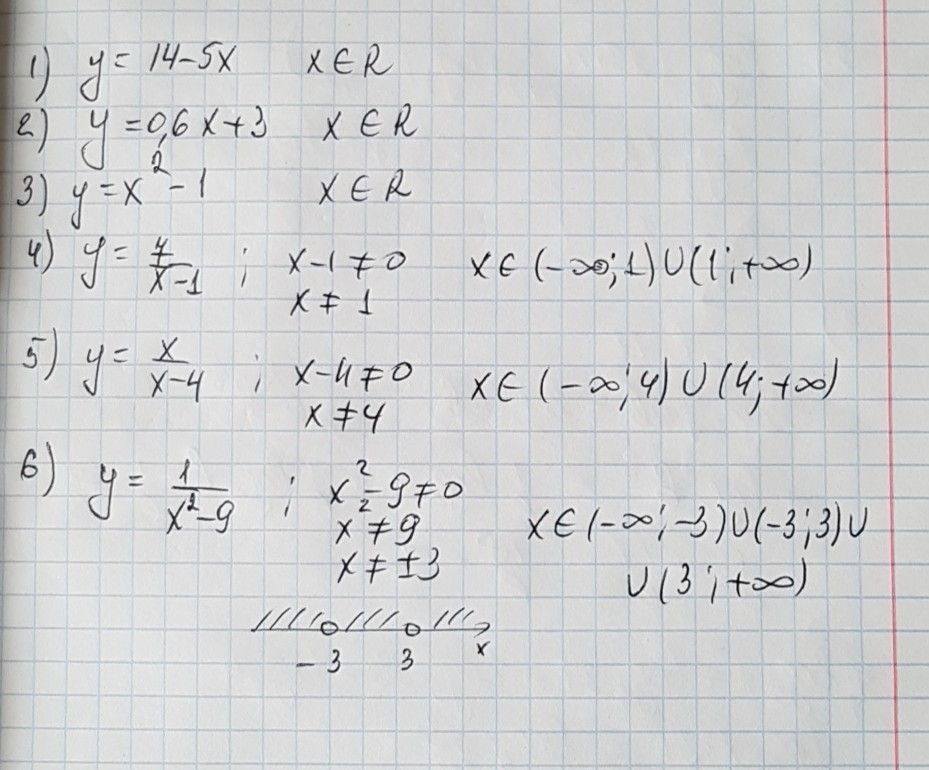 1) y = 14-5x x ∈ R
2) y = 0,6x+3 x ∈ R
3) y = x² - 1 x ∈ R
4) y = 7/(x-1) ; x-1 ≠ 0 x ∈ (-∞; 1) ∪ (1; +∞)
x ≠ 1
5) y = x/(x-4) ; x-4 ≠ 0 x ∈ (-∞; 4) ∪ (4; +∞)
x ≠ 4
6) y = 1/(x²-9) ; x² - 9 ≠ 0
x² ≠ 9 x ∈ (-∞; -3) ∪ (-3; 3) ∪
x ≠ ±3 ∪ (3; +∞)
-3 3 x